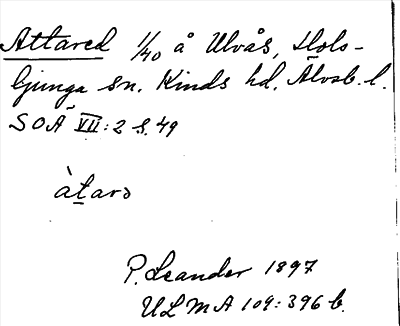 Attared 1/40 å Ulvås, Hols-
ljunga sn. Kinds hd. Älvsb. l.
SOÄ VII:2 S. 49
àtarə
P. Leander 1897
ULMA 109:396 b.